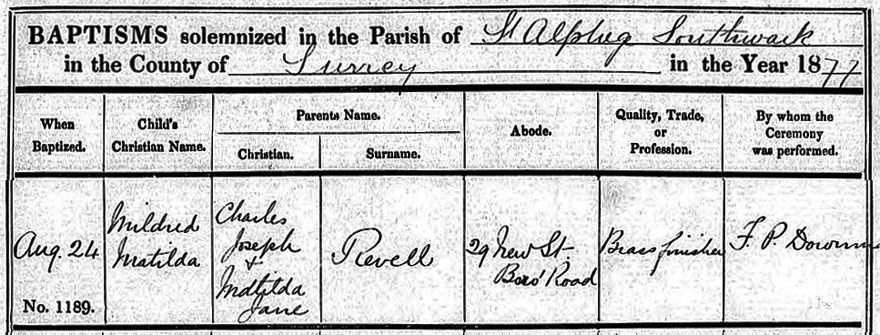 BAPTISMS solemnized in the Parish of St Alpheg Southwark
in the County of Surrey in the Year 1877
When Baptized.
Child's Christian Name.
Parents Name.
Christian.
Surname.
Abode.
Quality, Trade, or Profession.
By whom the Ceremony was performed.
Aug. 24
No. 1189.
Mildred
Matilda
Charles
Joseph
+
Matilda
Jane
Revell
29 New St.
Boro' Road
Brass finisher
F. P.